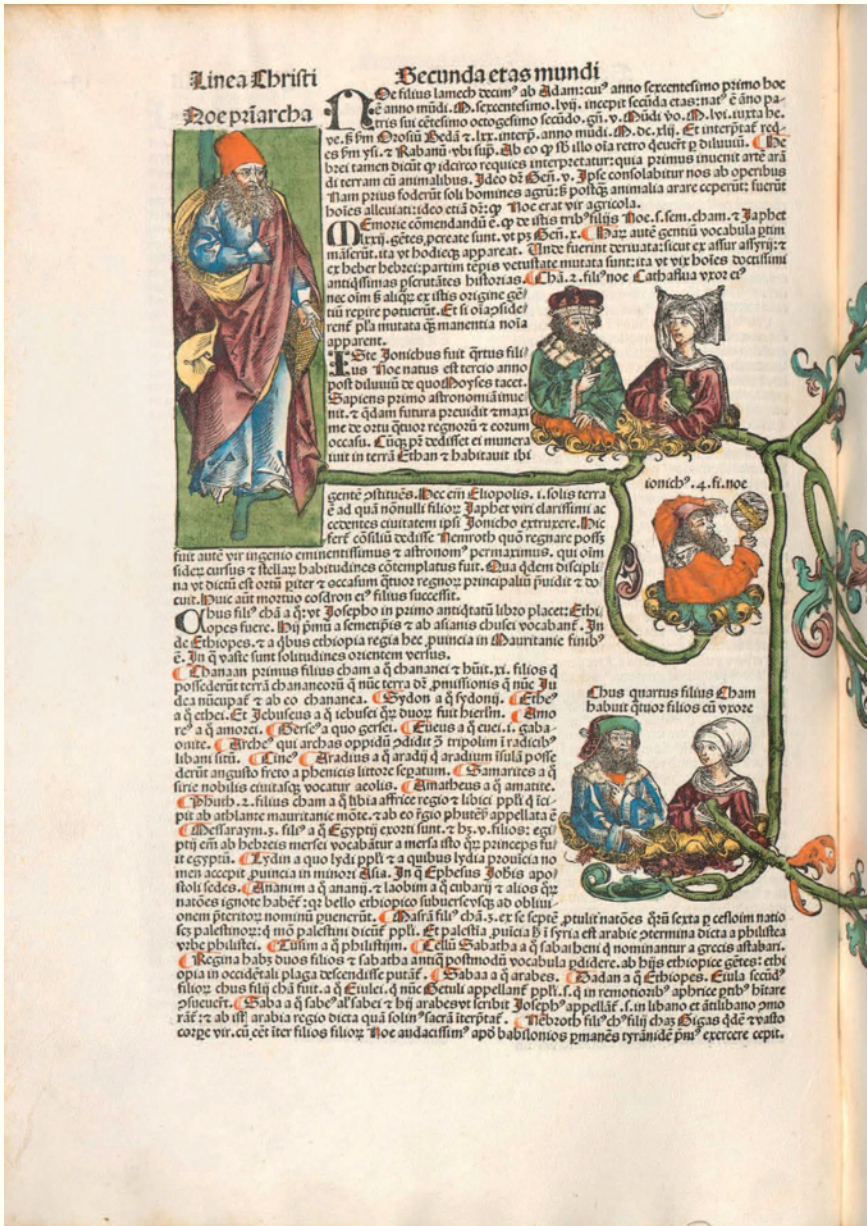 Linea Christi
Secunda etas mundi
Noe pr̃iarcha
NOe filius lamech decimꝰ ab Adam: cuiꝰ anno sexcentesimo primo hoc
ē anno mūdi. M. sexcentesimo. lvij. incepit secūda etas: natꝰ ē āno pa⸗
tris sui cētesimo octogesimo secūdo. gn̄. v. Mūdi ꝟo. M. lvi. iuxta he.
ve. ẜ ẜm Orosiū Bedā ⁊ lxx. interp̄. anno mūdi. M. dc. xlij. Et interp̄tat᷑ req̄⸗
es ẜm ysi. ⁊ Rabanū vbi sup̄. Ab eo ꝙ sb̄ illo oīa retro q̄eueīt ꝑ diluuiū. He
brei tamen dicūt ꝙ idcirco requies interpretatur: quia primus inuenit artē arā
di terram cū animalibus. Ideo dr̄ Gen̄. v. Ipse consolabitur nos ab operibus
Nam prius foderūt soli homines agrū: ẜ postq̄ꝫ animalia arare ceperūt: fuerūt
hoīes alleuiati: ideo etiā dr̄: ꝙ Noe erat vir agricola.
MEmorie cōmendandū ē. ꝙ de istis tribꝰ filijs Noe. s. sem. cham. ⁊ Japhet
lxxij. gētes ꝓcreate sunt. vt pꝫ Gen̄. x. Haꝝ autē gentiū vocabula ꝑtim
māserūt. ita vt hodieqꝫ appareat. Unde fuerint deriuata: sicut ex assur assyrij: ⁊
ex heber hebrei: partim tēpis vetustate mutata sunt: ita vt vix hoīes doctissimi
antiq̄ssimas ꝑscrutātes historias. Chā. 2. filiꝰ noe Cathaflua vxor eiꝰ
nec oīm ẜ aliq̄ꝝ ex istis origine gē⸗
tiū reꝑire potuerūt. Et si oīa ꝯside⸗
rent᷑ pl̄a mutata q̄ꝫ manentia noīa
apparent.
ISte Jonichus fuit q̄rtus fili⸗
us Noe natus est tercio anno
post diluuiū de quo Moyses tacet.
Sapiens primo astronomiā inue⸗
nit. ⁊ q̄dam futura preuidit ⁊ maxi
me de ortu q̄tuor regnorū ⁊ eorum
occasu. Cūqꝫ pr̄ dedisset ei munera
iuit in terrā Ethan ⁊ habitauit ibi
gentē ꝯstituēs. Hec eīm Eliopolis. i. solis terra
ē ad quā nōnulli filioꝝ Japhet viri clarissimi ac
cedentes ciuitatem ipsi Jonicho extruxere. Hic
fert᷑ cōsiliū dedisse Nemroth quō regnare possꝫ
ionichꝰ. 4. fi. noe
fuit autē vir ingenio eminentissimus ⁊ astronomꝰ permaximus. qui oīm
sideꝝ cursus ⁊ stellaꝝ habitudines cōtemplatus fuit. Qua q̄dem discipli
na vt dictū est ortū ꝑiter ⁊ occasum q̄tuor regnoꝝ principaliū p̄uidit ⁊ do
cuit. Huic aūt mortuo cosdron eiꝰ filius successit.
CHus filiꝰ chā a q̄: vt Josepho in primo antiq̄tatū libro placet: Ethi
opes fuere. Hij p̄mū a semetip̄is ⁊ ab asianis chusei vocabant᷑. In
de Ethiopes. ⁊ a q̄bus ethiopia regia hec ꝓuincia in Mauritanie finibꝰ
ē. In q̄ vaste sunt solitudines orientem versus.
Chanaan primus filius cham a q̄ chananei ⁊ hūit. xi. filios q̄
possederūt terrā chananeorū q̄ nūc terra dr̄ ꝓmissionis q̄ nūc Ju
dea nūcupat᷑ ⁊ ab eo chananea. Sydon a q̄ sydonij. Etheꝰ
a q̄ ethei. Et Jebuseus a q̄ iebusei q̄ꝝ duoꝝ fuit hierl̄m. Amo
reꝰ a q̄ amorei. Gerseꝰ a quo gersei. Eueus a q̄ euei. i. gaba⸗
onite. Archeꝰ qui archas oppidū ꝯdidit ꝯ tripolim ī radicibꝰ
libani sitū. Cineꝰ Aradius a q̄ aradij q̄ aradium īsulā posse
derūt angusto freto a phenicis littore seꝑatum. Samarites a q̄
sirie nobilis ciuitasqꝫ vocatur aeolis. Amatheus a q̄ amatite.
Phuth. 2. filius cham a q̄ libia affrice regio ⁊ libici pp̄li q̄ īci⸗
pit ab athlante mauritanie mōte. ⁊ ab eo r̄gio phuteſ̄ appellata ē
Messaraym. 3. filiꝰ a q̄ Egyptij exorti sunt. ⁊ hꝫ. v. filios: egi
ptij em̄ ab hebreis mersei vocabātur a mersa isto q̄ꝝ princeps fu⸗
it egyptū. Lydin a quo lydi pp̄li ⁊ a quibus lydia prouīcia no
men accepit ꝓuincia in minori Asia. In q̄ Ephesus Joh̄is apo⸗
stoli sedes. Ananim a q̄ ananij. ⁊ laobim a q̄ cubarij ⁊ alios q̄ꝝ
natōes ignote habēt᷑: qꝛ bello ethiopico subuerse vsqꝫ ad obliui⸗
Chus quartus filius Cham
habuit q̄tuor filios cū vxore
onem p̄teritoꝝ nominū ꝑuenerūt. Masrā filiꝰ chā. 3. ex se septē ꝓtulit natōes q̄rū sexta ꝑ cesloim natio
scꝫ palestinoꝝ: q̄ mō palestini dicūt᷑ pp̄li. Et palestīa ꝓuīcia h̄ ī syria est arabie ꝯtermina dicta a philistea
vrbe philistei. Tusim a q̄ philistijm. Cellū Sabatha a q̄ sabatheni q̄ nominantur a grecis astabari.
Regina habꝫ duos filios ⁊ sabatha antiq̄ postmodū vocabula ꝑdidere. ab hijs ethiopice gētes: ethi
opia in occidētali plaga descendisse putāt᷑. Sabaa a q̄ arabes. Dadan a q̄ Ethiopes. Eiula secūdꝰ
filioꝝ chus filij chā fuit. a q̄ Eiulei. q̄ nūc Getuli appellant᷑ pp̄li. s. q̄ in remotioribꝰ aphrice ꝑtibꝰ hītare
ꝯsueuerūt. Saba a q̄ sabeꝰ al̓ sabei ⁊ hij arabes vt scribit Josephꝰ appellāt᷑. s. in libano et ātilibano ꝯmo
rāt᷑: ⁊ ab iſt̓ arabia regio dicta quā solinꝰ sacrā īterp̄tat᷑. Nebroth filiꝰ chꝰ filij chaꝫ Gigas q̄dē ⁊ vasto
corꝑe vir. cū eēt īter filios filioꝝ Noe audacissimꝰ apd̓ babilonios ꝑmanēs tyrānidē p̄mꝰ exercere cepit.